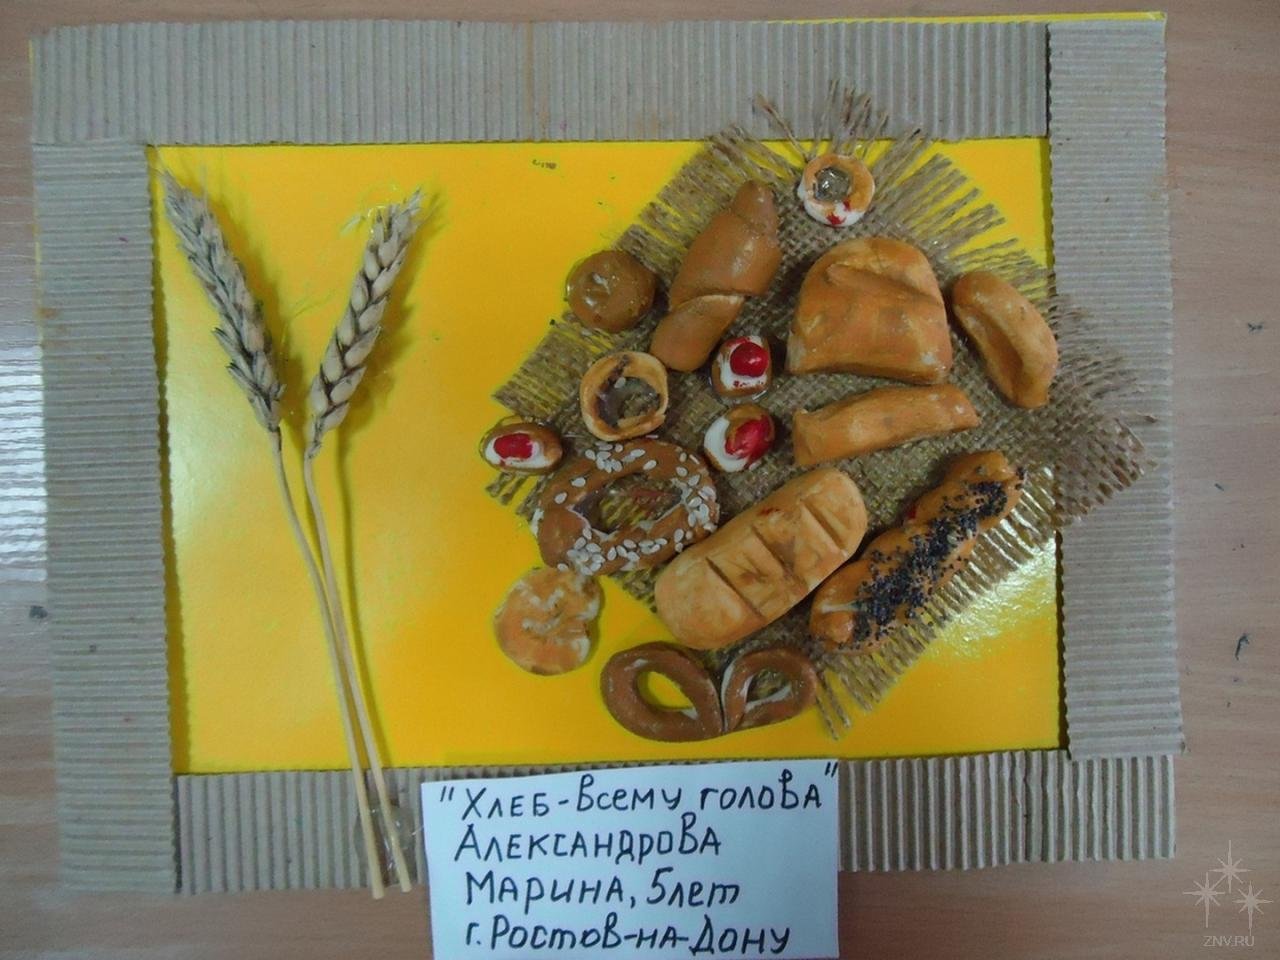 "Хлеб-всему голова"
Александрова
Марина, 5лет
г. Ростов-на-Дону
ZNV.RU